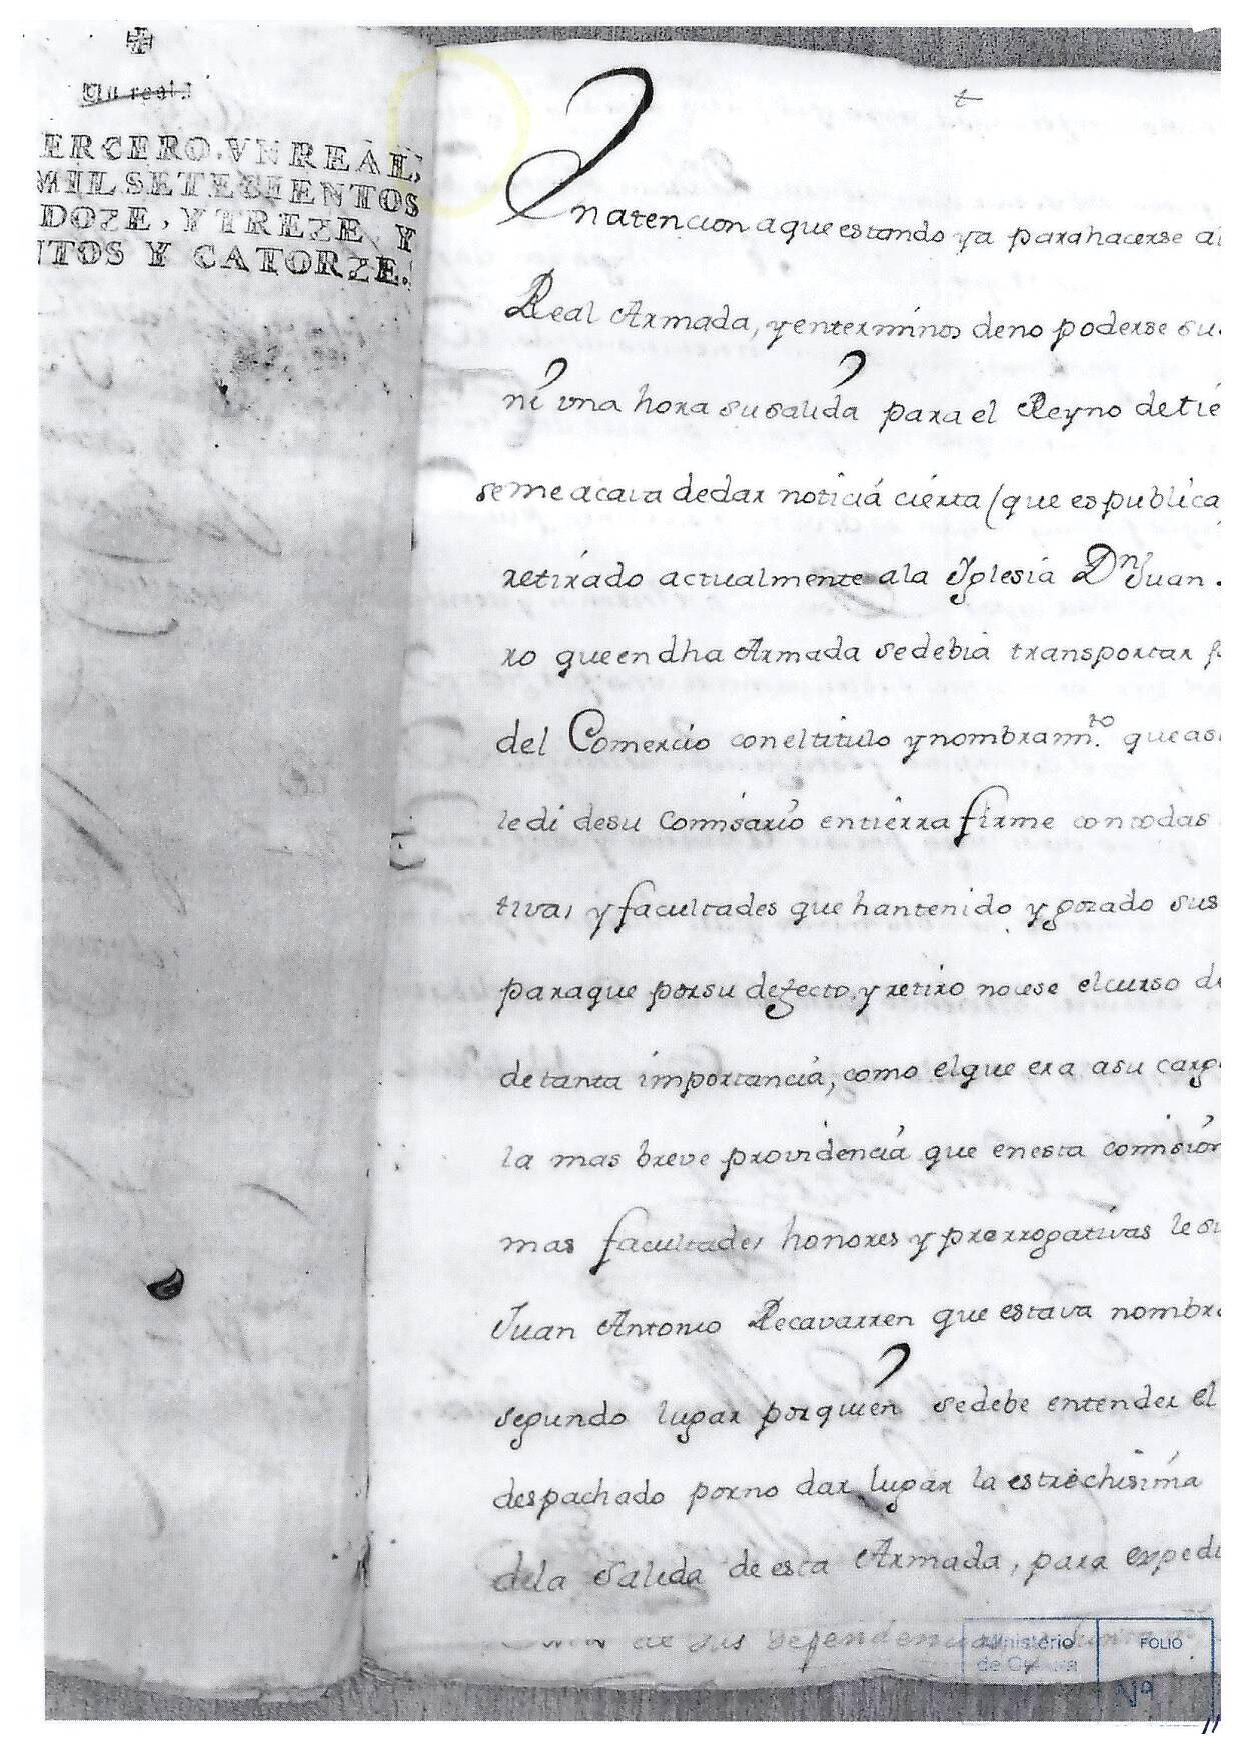 Un real.
ERCERO. VN REAL,
MIL SETECIENTOS
DOZE, Y TREZE, Y
NTOS Y CATORZE.
En atencion aque estando ya para hacerse al
Real Armada, y enterminos deno poderse su
ni vna hora su salida para el Reyno de tie
se me acava dedar noticia cierta (que es publica
retirado actualmente ala Yglesia Dn Juan
ro que en dha Armada sedebia transportar
del Comercio con el titulo y nombramto. que as
le di desu Comisario en tierra firme con todas
tivas y facultades que han tenido y gozado sus
paraque por su defecto, y retiro no cese el curso de
de tanta importancia, como el que era a su cargo
la mas breve providencia que en esta comision
mas facultades honores y prerrogativas le su
Juan Antonio Recavarren que estava nombra
segundo lugar por quien se debe entender el
despachado por no dar lugar la estrechisima
dela Salida de esta Armada, para expedi
de sus dependencias
Ministerio
de Cultura
FOLIO
Nº
11